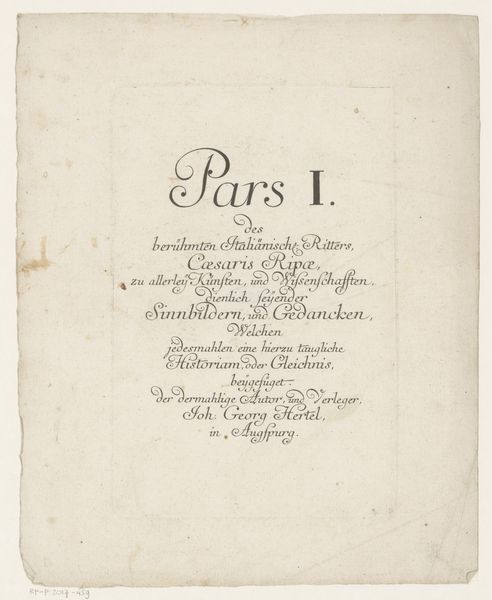 Pars I.
des
berühmten Italiänisch: Ritters,
Cæsaris Ripæ,
zu allerleÿ Künsten, und Wißenschafften,
dienlich seÿender
Sinnbildern, und Gedancken,
Welchen
jedesmahlen eine hierzu taugliche
Historiam, oder Gleichnis,
beÿgefüget.
der dermahlige Autor, und Verleger,
Joh. Georg Hertel,
in Augspurg.
RP-P-2017-459